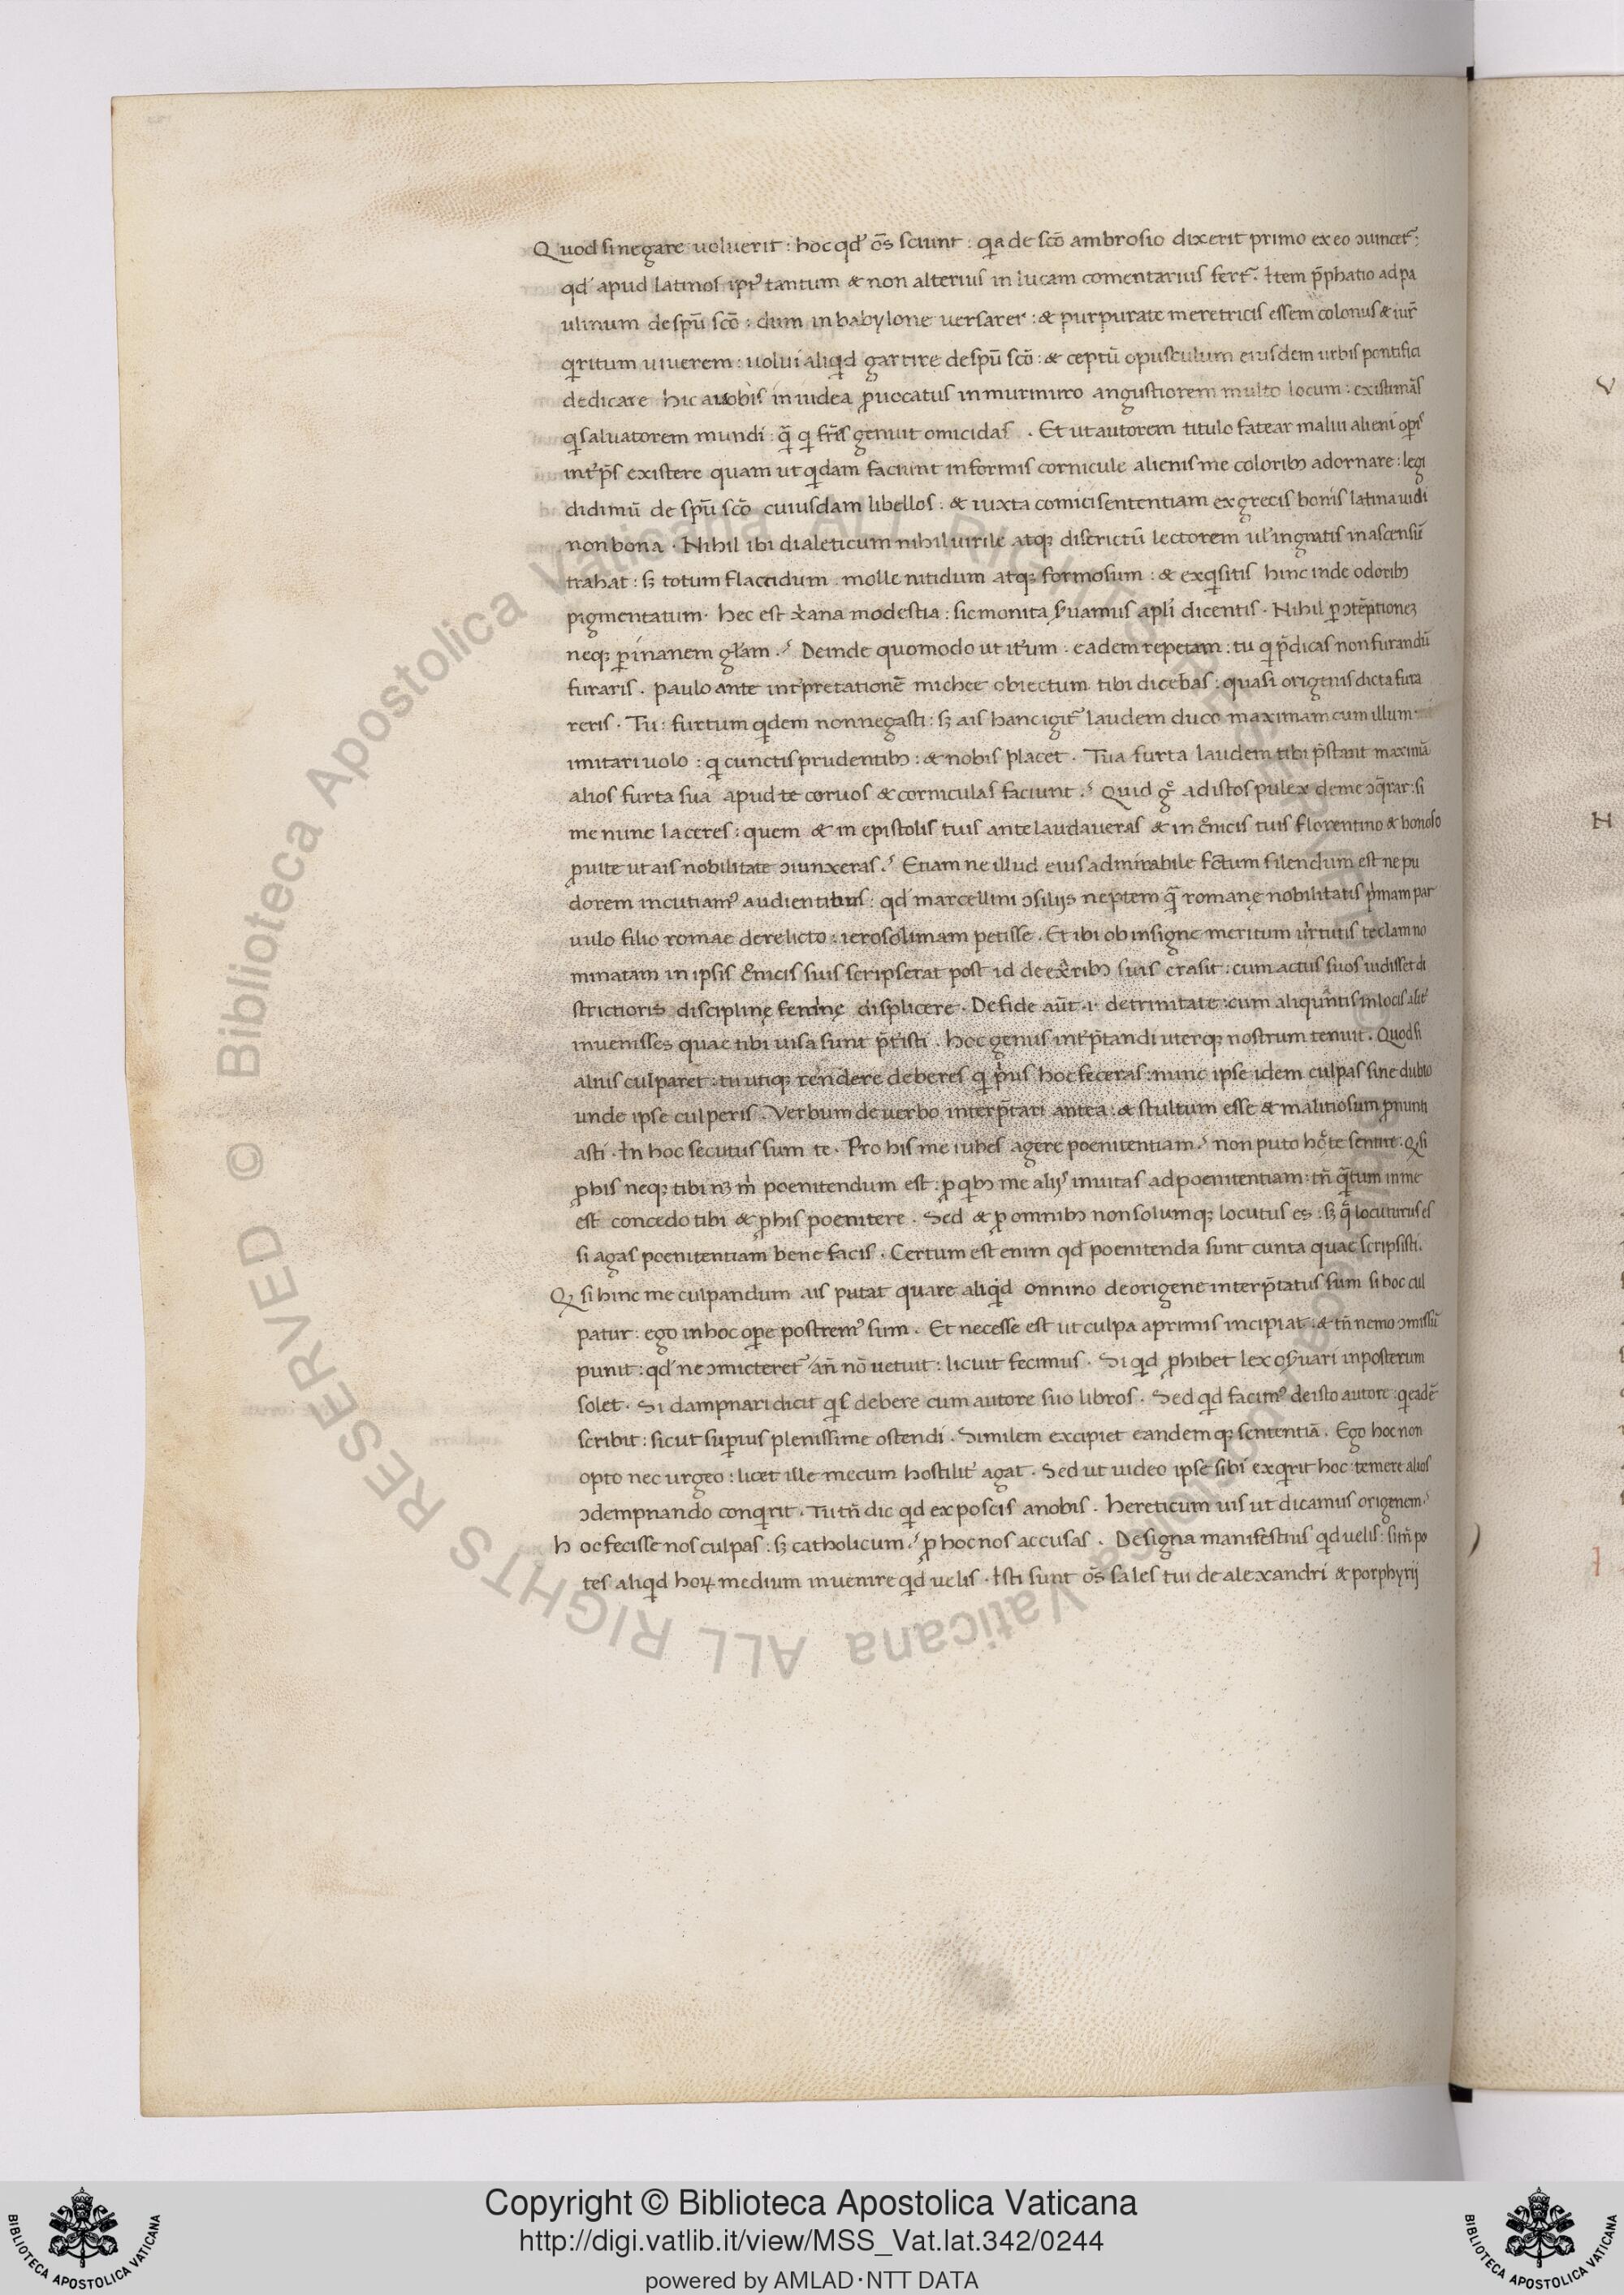 Quod si negare uoluerit : hoc qd' om̄s sciunt : qa de sco̅ ambrosio dixerit primo ex eo ɔuincet᷑ ;
qd' apud latinos ipı᷑ tantum & non alterius in lucam comentarius fert᷑. Item p̄phatio ad pa
ulinum de spū sco̅ : dum in babylone uersarer : & purpurate meretricis essem colonus & iur̄
qritum uiuerem : uolui aliqd garrire de spū sco̅ : & ceptū opusculum eiusdem urbis pontifici
dedicare
qi saluatorem mundi : q̄ qi fr̄is genuit omicidas . Et ut autorem titulo fatear malui alieni op̄is
int᷑p̄s existere quam ut qdam faciunt informis cornicule alienis me coloribꝫ adornare : legi
didimū de spū sco̅ cuiusdam libellos . & iuxta comici sententiam ex grecis bonis latina uidi
non bona . Nihil ibi dialeticum nihil uirile atqꝫ districtū lectorem ul' ingratis in ascensū
trahat : sꝫ totum flaccidum . molle nitidum atqꝫ formosum : & exqsitis hinc inde odoribꝫ
pigmentatum . hec est xᵖana modestia : sic monita ẜuamus apl'i dicentis . Nihil ꝑ ɔtēptioneꝫ
neqꝫ ꝑ inanem gl'am .ˢ Deinde quomodo ut it᷑um . eadem repetam : tu qi p̄dicas non furandū
furaris . paulo ante int᷑pretationē michee obiectum tibi dicebas : quasi origenis dicta fura
reris . Tu : furtum qdem non negasti : sꝫ ais hanc igit᷑ laudem duco maximam cum illum
imitari uolo : qi cunctis prudentibꝫ : & nobis placet . Tua furta laudem tibi p̄stant maximā
alios furta sua apud te coruos & corniculas faciunt .ˢ Quid gͦ ad istos pulex de me ɔq̄rar : si
me nunc laceres : quem & in epistolis tuis ante laudaueras & in cͦnicis tuis florentino & bonoso
ꝓuite ut ais nobilitate ɔiunxeras .ˢ Etiam ne illud eius admirabile fc̄tum silendum est ne pu
dorem incutiam᷒ audientibus : qd' marcellini ɔsilijs neptem q̄ romanę nobilitatis pᵢmam par
uulo filio romae derelicto : ierosolimam petisse . Et ibi ob insigne meritum uᵢrtutis teclam no
minatam in ipsis cͦnicis suis scripserat post id de exēribꝫ suis erasit : cum actus suos uidisset di
strictioris disciplinę feminę displicere . De fide aūt .i. de trinitate : cum aliquātis in locis alit᷑
inuenisses quae tibi uisa sunt p̄t᷑isti . hoc genus int᷑p̄tandi uterqꝫ nostrum tenuit . Quod si
alius culparet : tu utiqꝫ rēndere deberes qi pᵢus hoc feceras : nunc ipse idem culpas sine dubio
unde ipse culperis . Verbum de uerbo interp̄tari antea : & stultum esse & malitiosum ꝓnunti
asti . In hoc secutus sum te . Pro his me iubes agere poenitentiam .ˢ non puto hoͨ te sentire . Qꝫ si
ꝓ his neqꝫ tibi neqꝫ mᵢ poenitendum est : ꝓ qibꝫ me alijˢ inuitas ad poenitentiam : tn̄ q̄tum in me
est concedo tibi & ꝓ his poenitere . Sed & ꝓ omnibꝫ non solum qꝫ locutus es : sꝫ q̄ locuturus es
si agas poenitentiam bene facis . Certum est enim qd' poenitenda sunt cunta quae scripsisti .
Qꝫ si hinc me culpandum ais putat quare aliqd omnino de origene interp̄tatus sum si hoc cul
patur : ego in hoc oꝑe postrem᷒ sum . Et necesse est ut culpa a primis incipiat : & tn̄ nemo ɔmissū
punit : qd' ne ɔmicteret᷑ an̄ nō uetuit : licuit fecimus . Si qd ꝓhibet lex oẜuari in posterum
solet . Si dampnari dicit qs debere cum autore suo libros . Sed qd facim᷒ de isto autore : qi eadē
scribit : sicut suꝑius plenissime ostendi . Similem excipiet eandem qꝫ sententiā . Ego hoc non
opto nec urgeo : licet ille mecum hostilit᷑ agat . Sed ut uideo ipse sibi exqrit hoc : temere alios
ɔdempnando conqirit . Tu tn̄ dic qd exposcis a nobis . hereticum uis ut dicamus origenem .ˢ
hoc fecisse nos culpas : sꝫ catholicum .ˢ ꝓ hoc nos accusas . Designa manifestius qd uelis : si tn̄ po
tes aliqd hoꝝ medium inuenire qd uelis . Isti sunt om̄s sales tui de alexandri & porphyrij
Copyright © Biblioteca Apostolica Vaticana
http://digi.vatlib.it/view/MSS_Vat.lat.342/0244
powered by AMLAD·NTT DATA